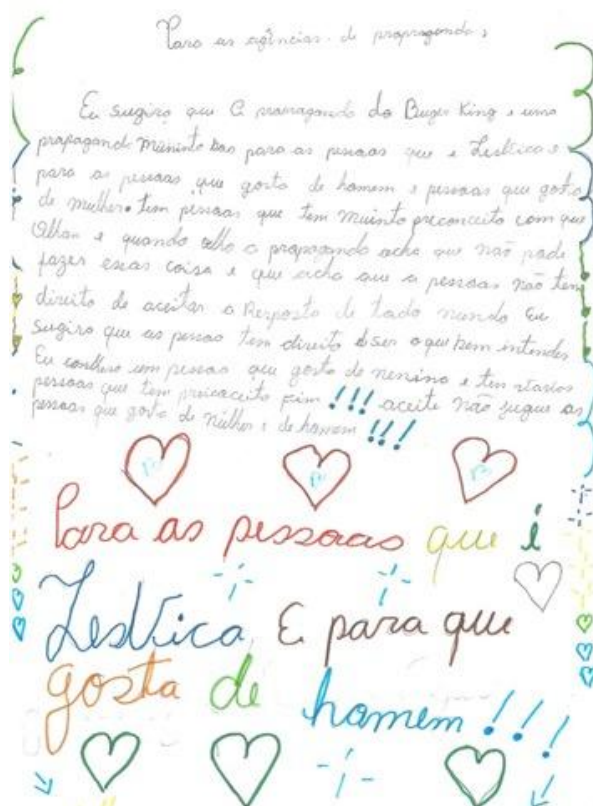 Para as agências de propragandas
Eu sugiro que a prorraganda do Buger King e uma
propaganda muninto boa para as pessoas que e Lesbica e
para as pessoas que gosta de homem e pessoas que gosta
de mulher. tem pessoas que tem muinto preconceito com que
Olhar e quando olha a propaganda acha que não pode
fazer essas coisa e que acha que a pessoas não tem
direito de aceitar a Resposta de todo mundo Eu
sugiro que as pessoa tem direito de ser o que bem intender
Eu conheso um pessoa que gosta de menino e tem varios
pessoas que tem preicoceito fim !!! aceite não jugue as
pessoas que gosta de mulher e de homem !!!
Para as pessoas que é
Lesbica E para que
gosta de homem !!!